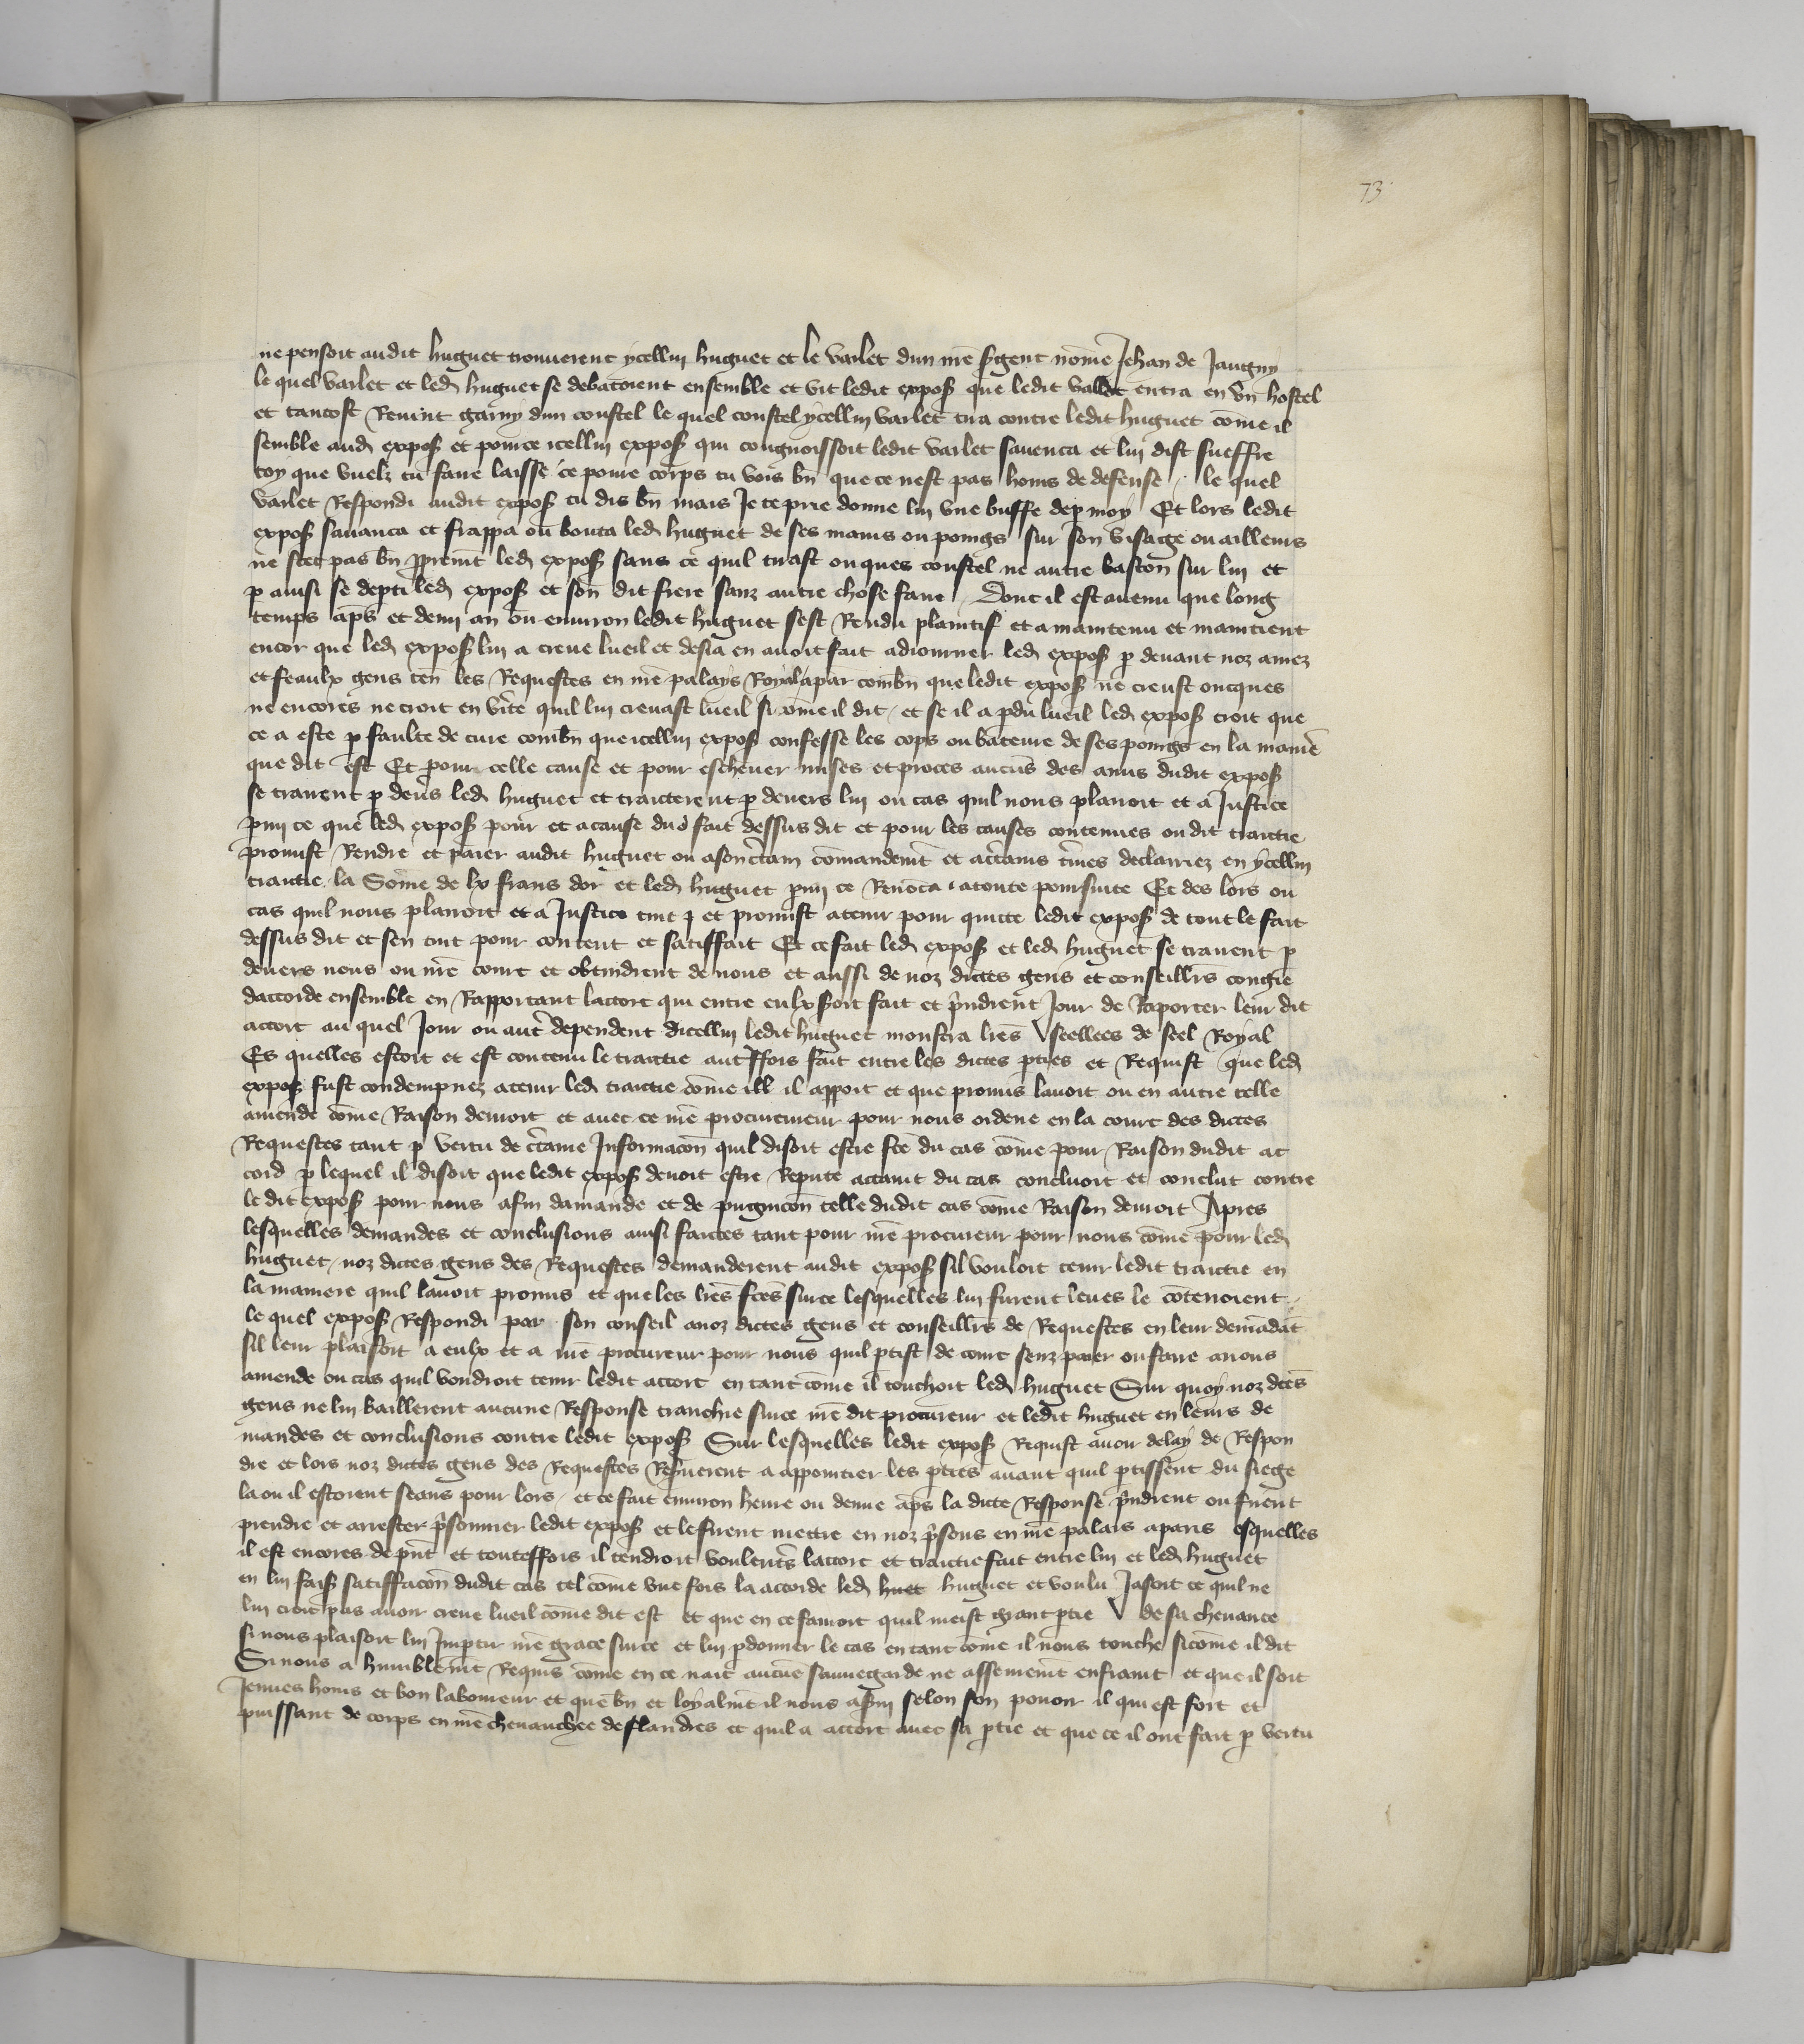 73
ne pensoit audit huguet trouverent ycellui huguet et le varlet dun nrē sergent nōme Jehan de Jaugny
le quel varlet et led huguet se debatoient ensemble et vit ledit expos̄ que ledit vallet entra en vn hostel
et tantost Revint garny dun coustel le quel coustel ycellui varlet tira contre ledit huguet cōme il
semble aud expos̄ et pource icellui expos̄ qui congnoissoit ledit varlet savença et lui dist sueffre
toy que vuelz tu faire laisse ce povre corps tu vois bn̄ que ce nest pas homs de defense / le quel
varlet Respondi audit expos̄ tu dis bn̄ mais Je te prie donne lui vne buffe de p moy Et lors ledit
expos̄ savança et frappa ou bouta led huguet de ses mains ou poings sur son visage ou ailleurs
ne scet pas bn̄ ppremēt led expos̄ sans ce quil tirast onques coustel ne autre baston sur lui et
p ainsi se depti led expos̄ et son dit frere sanz autre chose faire / Dont il est avenu que long
temps aps̄ et demi an ou environ ledit huguet sest Rendu plaintif et a maintenu et maintient
encor que led expos̄ lui a creve lueil et desia en avoit fait adiourner led expos̄ p devant noz amez
et feaulx gens ten̄ les Requestes en nrē palays Royal a par combn̄ que ledit expos̄ ne creust oncques
ne encores ne croit en vite quil lui crevast lueil si cōme il dit / et se il a pdu lueil led expos̄ croit que
ce a este p faulte de cure combn̄ que icellui expos̄ confesse les cops ou bateure de ses poings en la maniē
que dit est Et pour celle cause et pour eschever mises et proces aucūs des amis dudit expos̄
se trairent p devs led huguet et traicterent p devers lui ou cas quil nous plairoit et a Justice
pmi ce que led expos̄ pour et a cause dud fait dessus dit et pour les causes contenues ou dit traictie
promist Rendre et paier audit huguet ou a son ctain cōmandemēt et a ctains tmes declairiez en ycellui
traictie la Sōme de lx frans dor et led huguet pmi ce Renonca a toute poursuite Et des lors ou
cas quil nous plairoit et a Justice tint et promist a tenir pour quitte ledit expos̄ de tout le fait
dessus dit et sen tint pour content et satiffait Et ce fait led expos̄ et led huguet se trairent p
devers nous ou nrē court et obtindrent de nous et aussi de noz dictes gens et conseillrs̄ congie
daccorde ensemble en Rapportant laccort qui entre eulx seroit fait et pndrent Jour de Raporter leur dit
accort au quel Jour ou autre dependent dicellui ledit huguet monstra lrēs seellees de seel Royal
Es quelles estoit et est contenu le traictie autreffois fait entre les dictes pties et Requist que led
expos̄ fust condempnez a tenir led traictie cōme ill il appoit et que promis lavoit ou en autre telle
amende cōme Raison devroit et avec ce nrē procureur pour nous ordene en la court des dictes
Requestes tant p vertu de ctaine Informacōn quil disoit estre fcē du cas cōme pour Raison dudit ac
cord p lequel il disoit que ledit expos̄ devoit estre Repute attaint du cas concluoit et conclut contre
le dit expos̄ pour nous afin damande et de pugnicōn telle dudit cas cōme Raison devroit Apres
lesquelles demandes et conclusions ainsi faictes tant pour nrē procureur pour nous cōme pour led
huguet / noz dictes gens des Requestes demanderent audit expos̄ sil vouloit tenir ledit traictie en
la maniere quil lavoit promis et que les lrēs fcēs sur ce lesquelles lui furent leues le cōtenoient /
le quel expos̄ Respondi par son conseil a noz dictes gens et conseillrs̄ de Requestes en leur demādāt
sil leur plaisoit a eulx et a nrē procureur pour nous quil ptist de court senz paier ou faire a nous
amende ou cas quil voudroit tenir ledit accort en tant cōme il touchoit led huguet Sur quoy noz dcēs
gens ne lui baillerent aucune Response tranchie sur ce nrē dit procureur et ledit huguet en leurs de
mandes et conclusions contre ledit expos̄ Sur lesquelles ledit expos̄ Requist avoir delay de Respon
dre et lors noz dictes gens des Requestes Reserverent a appointier les pties avant quil ptissent du siege
la ou il estoient seans pour lors / et ce fait environ heure ou demie aps̄ la dicte Response pndrent ou firent
prendre et arrester psonnier ledit expos̄ et le firent mettre en noz psons en nrē palais a paris esquelles
il est encores de pnt et touteffois il tendroit voulentrs̄ laccort et traictie fait entre lui et led huguet
en lui fais̄ satiffacōn dudit cas tel cōme vne fois la accorde led huet huguet et voulu Jasoit ce quil ne
lui croit pas avoir creve lueil cōme dit est et que en ce fairoit quil meist grant ptie de sa chevance
si nous plaisoit lui Imptir nrē grace sur ce et lui pdonner le cas en tant cōme il nous touche si cōme il dit
Si nous a humblemēt Requis cōme en ce nait aucūe sauvegarde ne asseuremēt enfraint et que il soit
Jeunes homs et bon laboureur et que bn̄ et loyalmēt il nous a servi selon son povoir il qui est fort et
puissant de corps en nrē chevauchee de flandres et quil a accort avec sa ptie et que ce il ont fait p vertu